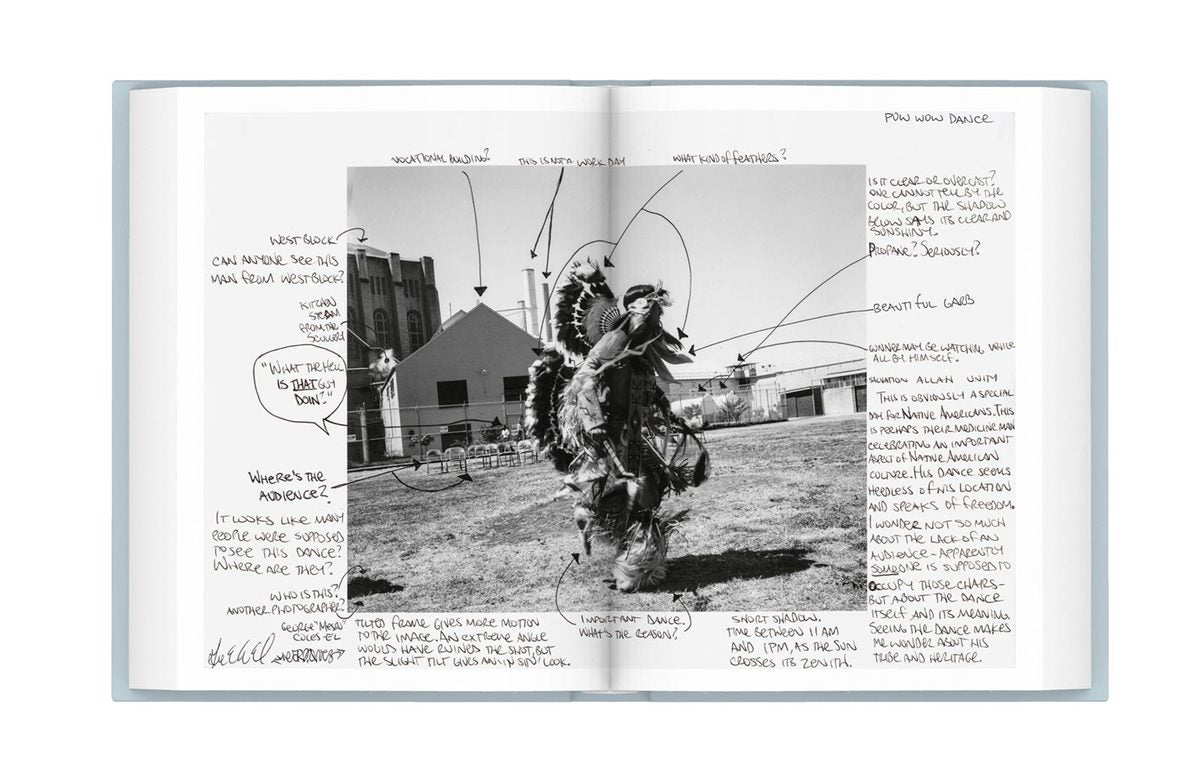 POW WOW DANCE
VOCATIONAL BUILDING?
THIS IS NOT A WORK DAY
WHAT KIND OF FEATHERS?
WEST BLOCK
CAN ANYONE SEE THIS
MAN FROM WEST BLOCK?
KITCHEN
STEAM
FROM THE
SCULLERY
"WHAT THE HELL
IS THAT GUY
DOIN?"
WHERE'S THE
AUDIENCE?
IT LOOKS LIKE MANY
PEOPLE WERE SUPPOSED
TO SEE THIS DANCE?
WHERE ARE THEY?
WHO IS THIS?
ANOTHER PHOTOGRAPHER?
GEORGE "MESRO"
COLES-EL
TILTED FRAME GIVES MORE MOTION
TO THE IMAGE. AN EXTREME ANGLE
WOULD HAVE RUINED THE SHOT, BUT
THE SLIGHT TILT GIVES AN 'IN SIN' LOOK.
IMPORTANT DANCE.
WHAT'S THE REASON?
SHORT SHADOW.
TIME BETWEEN 11 AM
AND 1PM, AS THE SUN
CROSSES ITS ZENITH.
IS IT CLEAR OR OVERCAST?
ONE CANNOT TELL BY THE
COLOR, BUT THE SHADOW
BELOW SAYS ITS CLEAR AND
SUNSHINY.
PROPANE? SERIOUSLY?
BEAUTIFUL GARB
GUNNER MAY BE WATCHING WHILE
ALL BY HIMSELF.
SALVATION ALLAH UNITY
THIS IS OBVIOUSLY A SPECIAL
DAY FOR NATIVE AMERICANS. THIS
IS PERHAPS THEIR MEDICINE MAN
CELEBRATING AN IMPORTANT
ASPECT OF NATIVE AMERICAN
CULTURE. HIS DANCE SEEMS
HEEDLESS OF HIS LOCATION
AND SPEAKS OF FREEDOM.
I WONDER NOT SO MUCH
ABOUT THE LACK OF AN
AUDIENCE – APPARENTLY
SOMEONE IS SUPPOSED TO
OCCUPY THOSE CHAIRS –
BUT ABOUT THE DANCE
ITSELF AND ITS MEANING.
SEEING THE DANCE MAKES
ME WONDER ABOUT HIS
TRIBE AND HERITAGE.